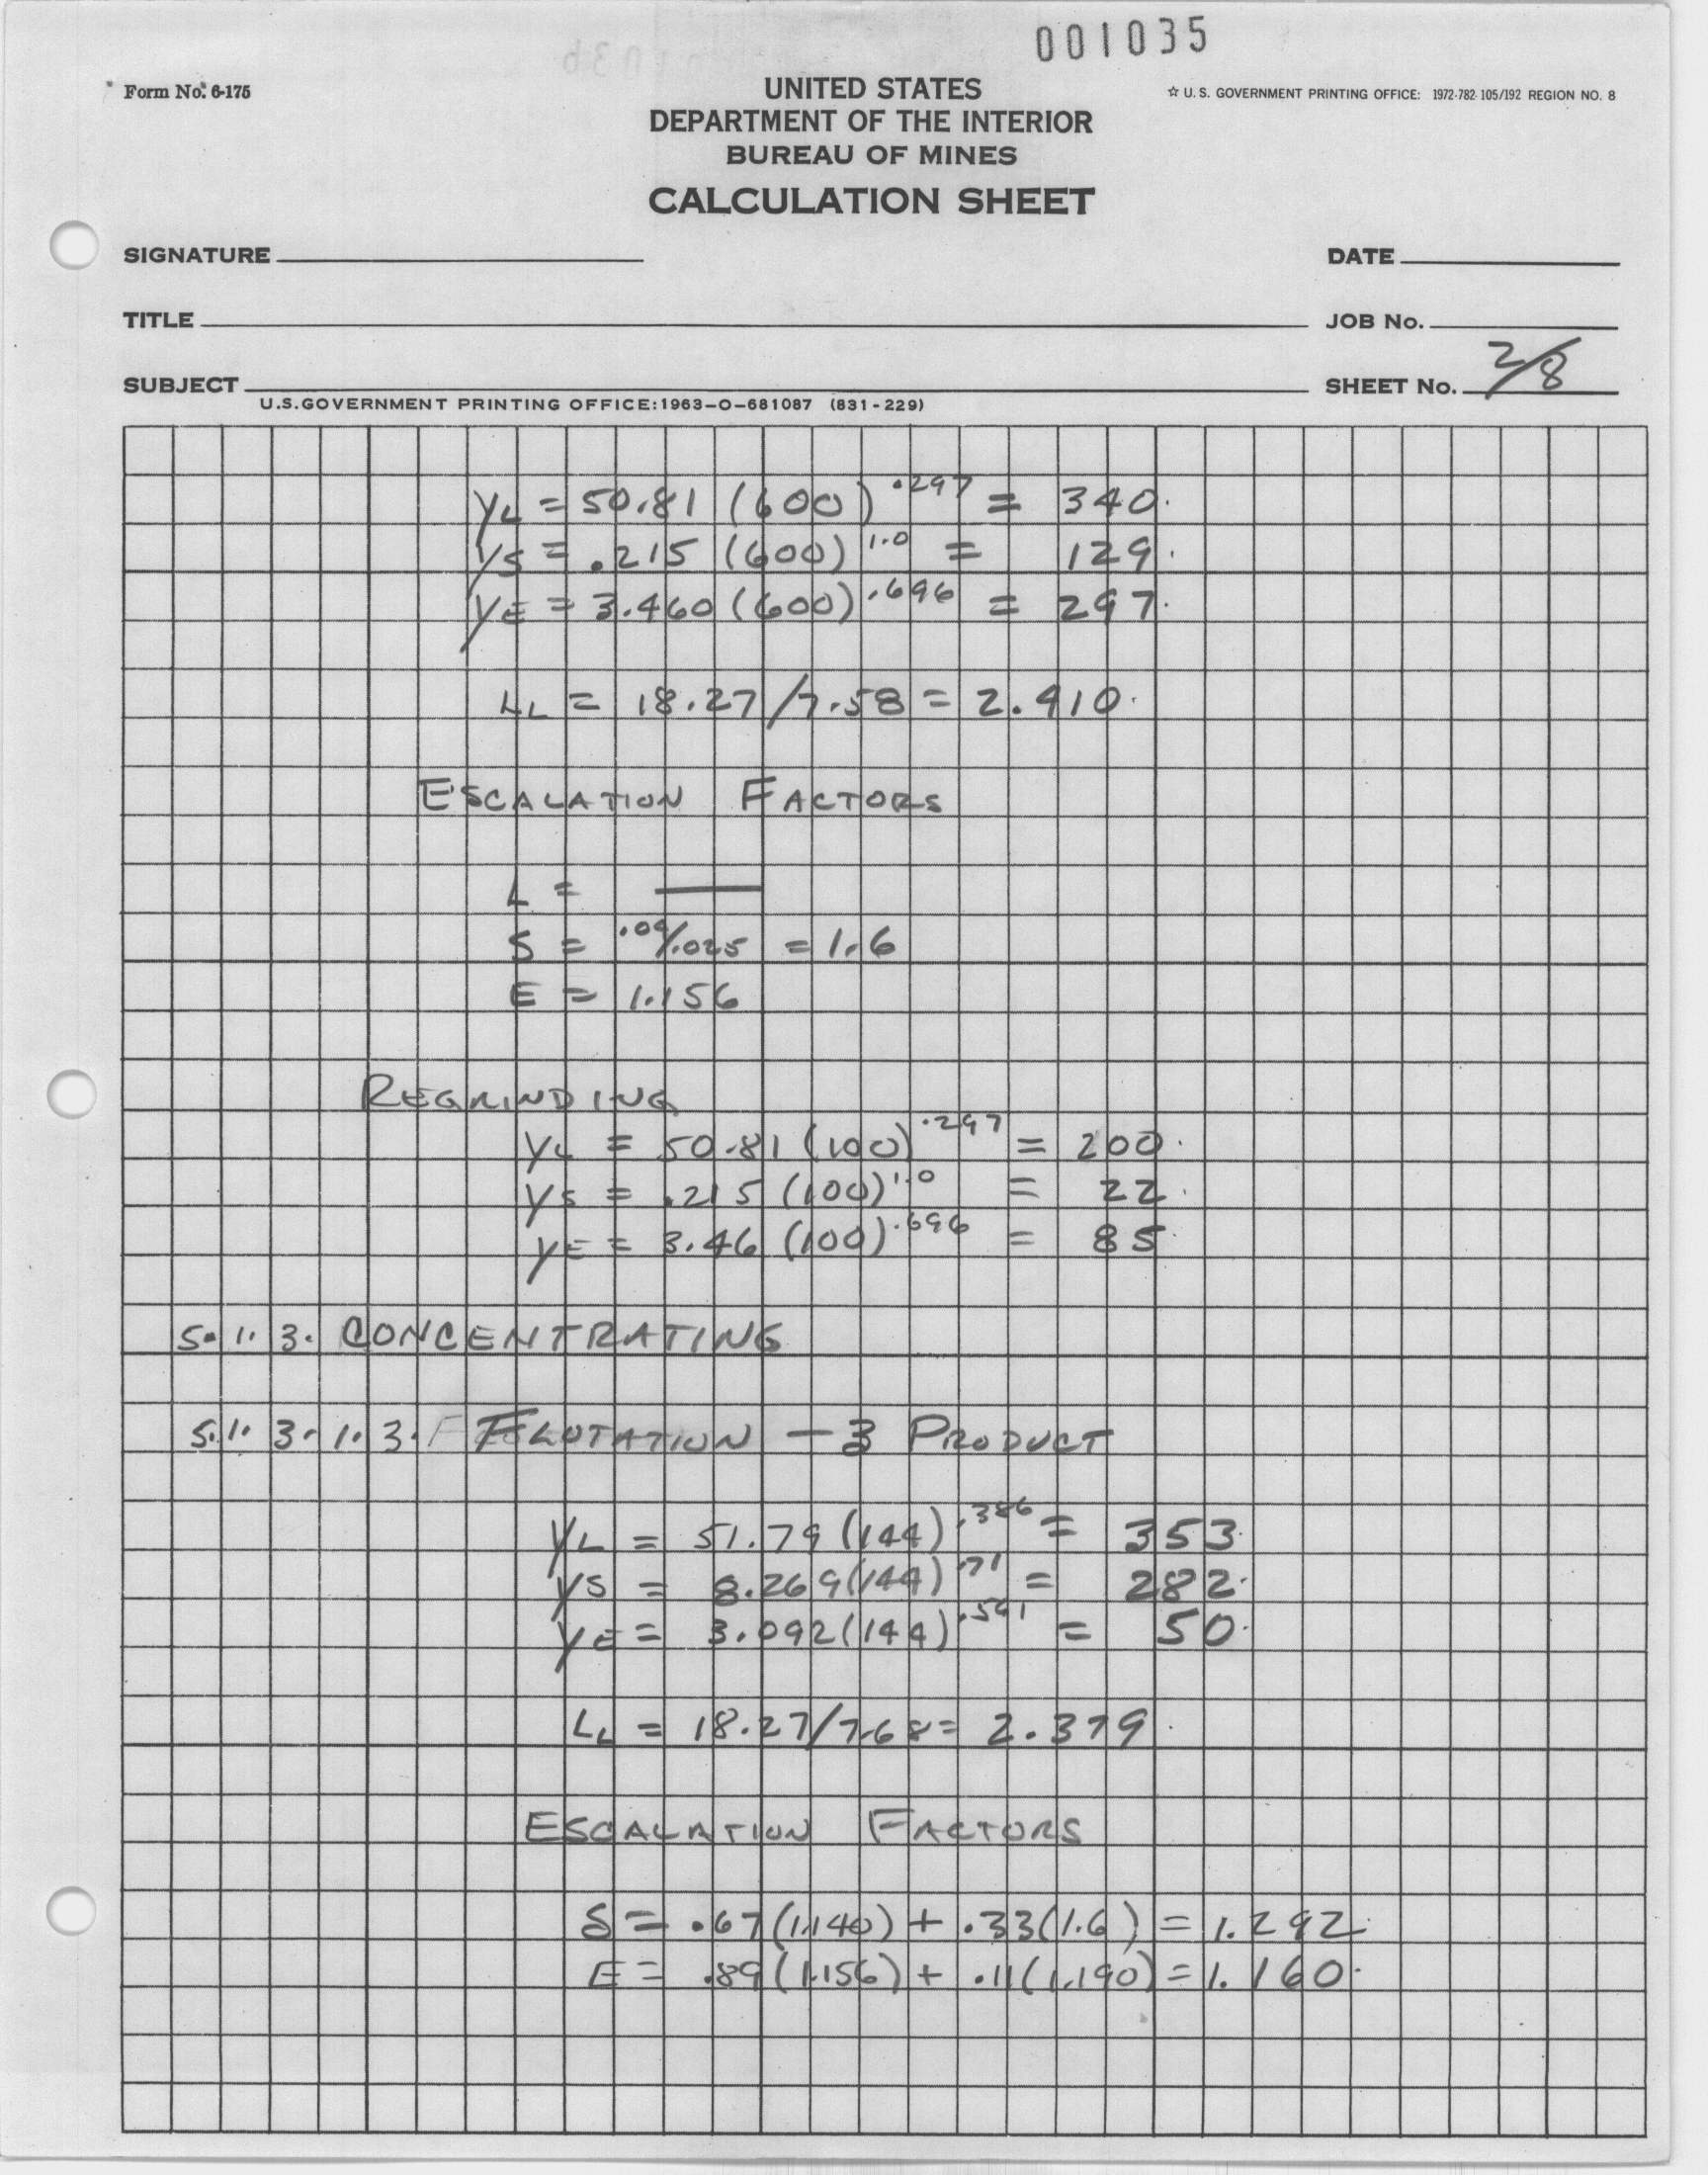 001035
Form No. 6-175
UNITED STATES
DEPARTMENT OF THE INTERIOR
BUREAU OF MINES
CALCULATION SHEET
☆ U. S. GOVERNMENT PRINTING OFFICE: 1972-782-105/192 REGION NO. 8
SIGNATURE
DATE
TITLE
JOB No.
SUBJECT
SHEET No. 2/8
U.S.GOVERNMENT PRINTING OFFICE:1963-O-681087 (831-229)
YL = 50.81 (600)^.297 = 340.
YS = .215 (600)^1.0 = 129.
YE = 3.460 (600)^.696 = 297.
LL = 18.27/7.58 = 2.410.
ESCALATION FACTORS
L = —
S = .04/.025 = 1.6
E = 1.156
REGRINDING
YL = 50.81 (100)^.297 = 200.
YS = .215 (100)^1.0 = 22.
YE = 3.46 (100)^.696 = 85.
5.1.3. CONCENTRATING
5.1.3.1.3. FLOTATION – 3 PRODUCT
YL = 51.79 (144)^.386 = 353.
YS = 8.269 (144)^.71 = 282.
YE = 3.092 (144)^.561 = 50.
LL = 18.27/7.68 = 2.379.
ESCALATION FACTORS
S = .67(1.140) + .33(1.6) = 1.292.
E = .89(1.156) + .11(1.190) = 1.160.